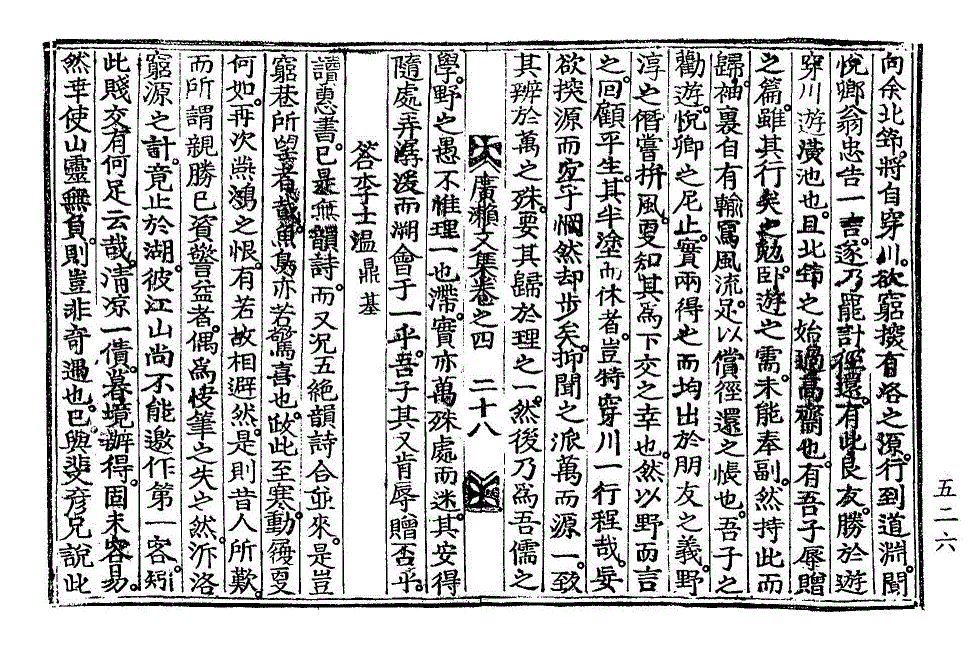 向余北節。將自穿川。欲窮撥有洛之源。行到道淵。聞
悅卿翁忠告一言。遂乃罷計徑還。有此良友。勝於遊
穿川遊潢池也。且北節之始過高齋也。有吾子辱贈
之篇。雖其行矣之勉。臥遊之需。未能奉副。然持此而
歸。袖裏自有輸寫風流。足以償徑還之悵也。吾子之
勸遊。悅卿之尼止。實兩得也。而均出於朋友之義。野
淳之僭嘗拚風。更知其爲下交之幸也。然以野而言
之。回顧平生。其半塗而休者。豈特穿川一行程哉。妄
欲探源而窅乎惘然却步矣。抑聞之派萬而源一。致
其辨於萬之殊。要其歸於理之一。然後乃爲吾儒之
廣瀨文集卷之四 二十八
學。野之愚不惟理一也滯。實亦萬殊處而迷。其安得
隨處弄潺湲而溯會于一乎。吾子其又肯辱贈否乎。
答李士溫鼎基
讀惠書。已暴無韻詩。而又況五絶韻詩合並來。是豈
窮巷所望者。戴魚鳧亦若驚喜也。啟此至寒。動履更
何如。再次燕鴻之恨。有若故相避然。是則昔人所歎。
而所謂親勝已資警益者。偶爲忮筆之失也。然泝洛
窮源之計。竟止於湖。彼江山尚不能邀作第一客。矧
此賤交有何足云哉。淸凉一債。暮境辦得。固未容易。
然幸使山靈無負。則豈非奇遇也。已與斐彥兄說此
五二六